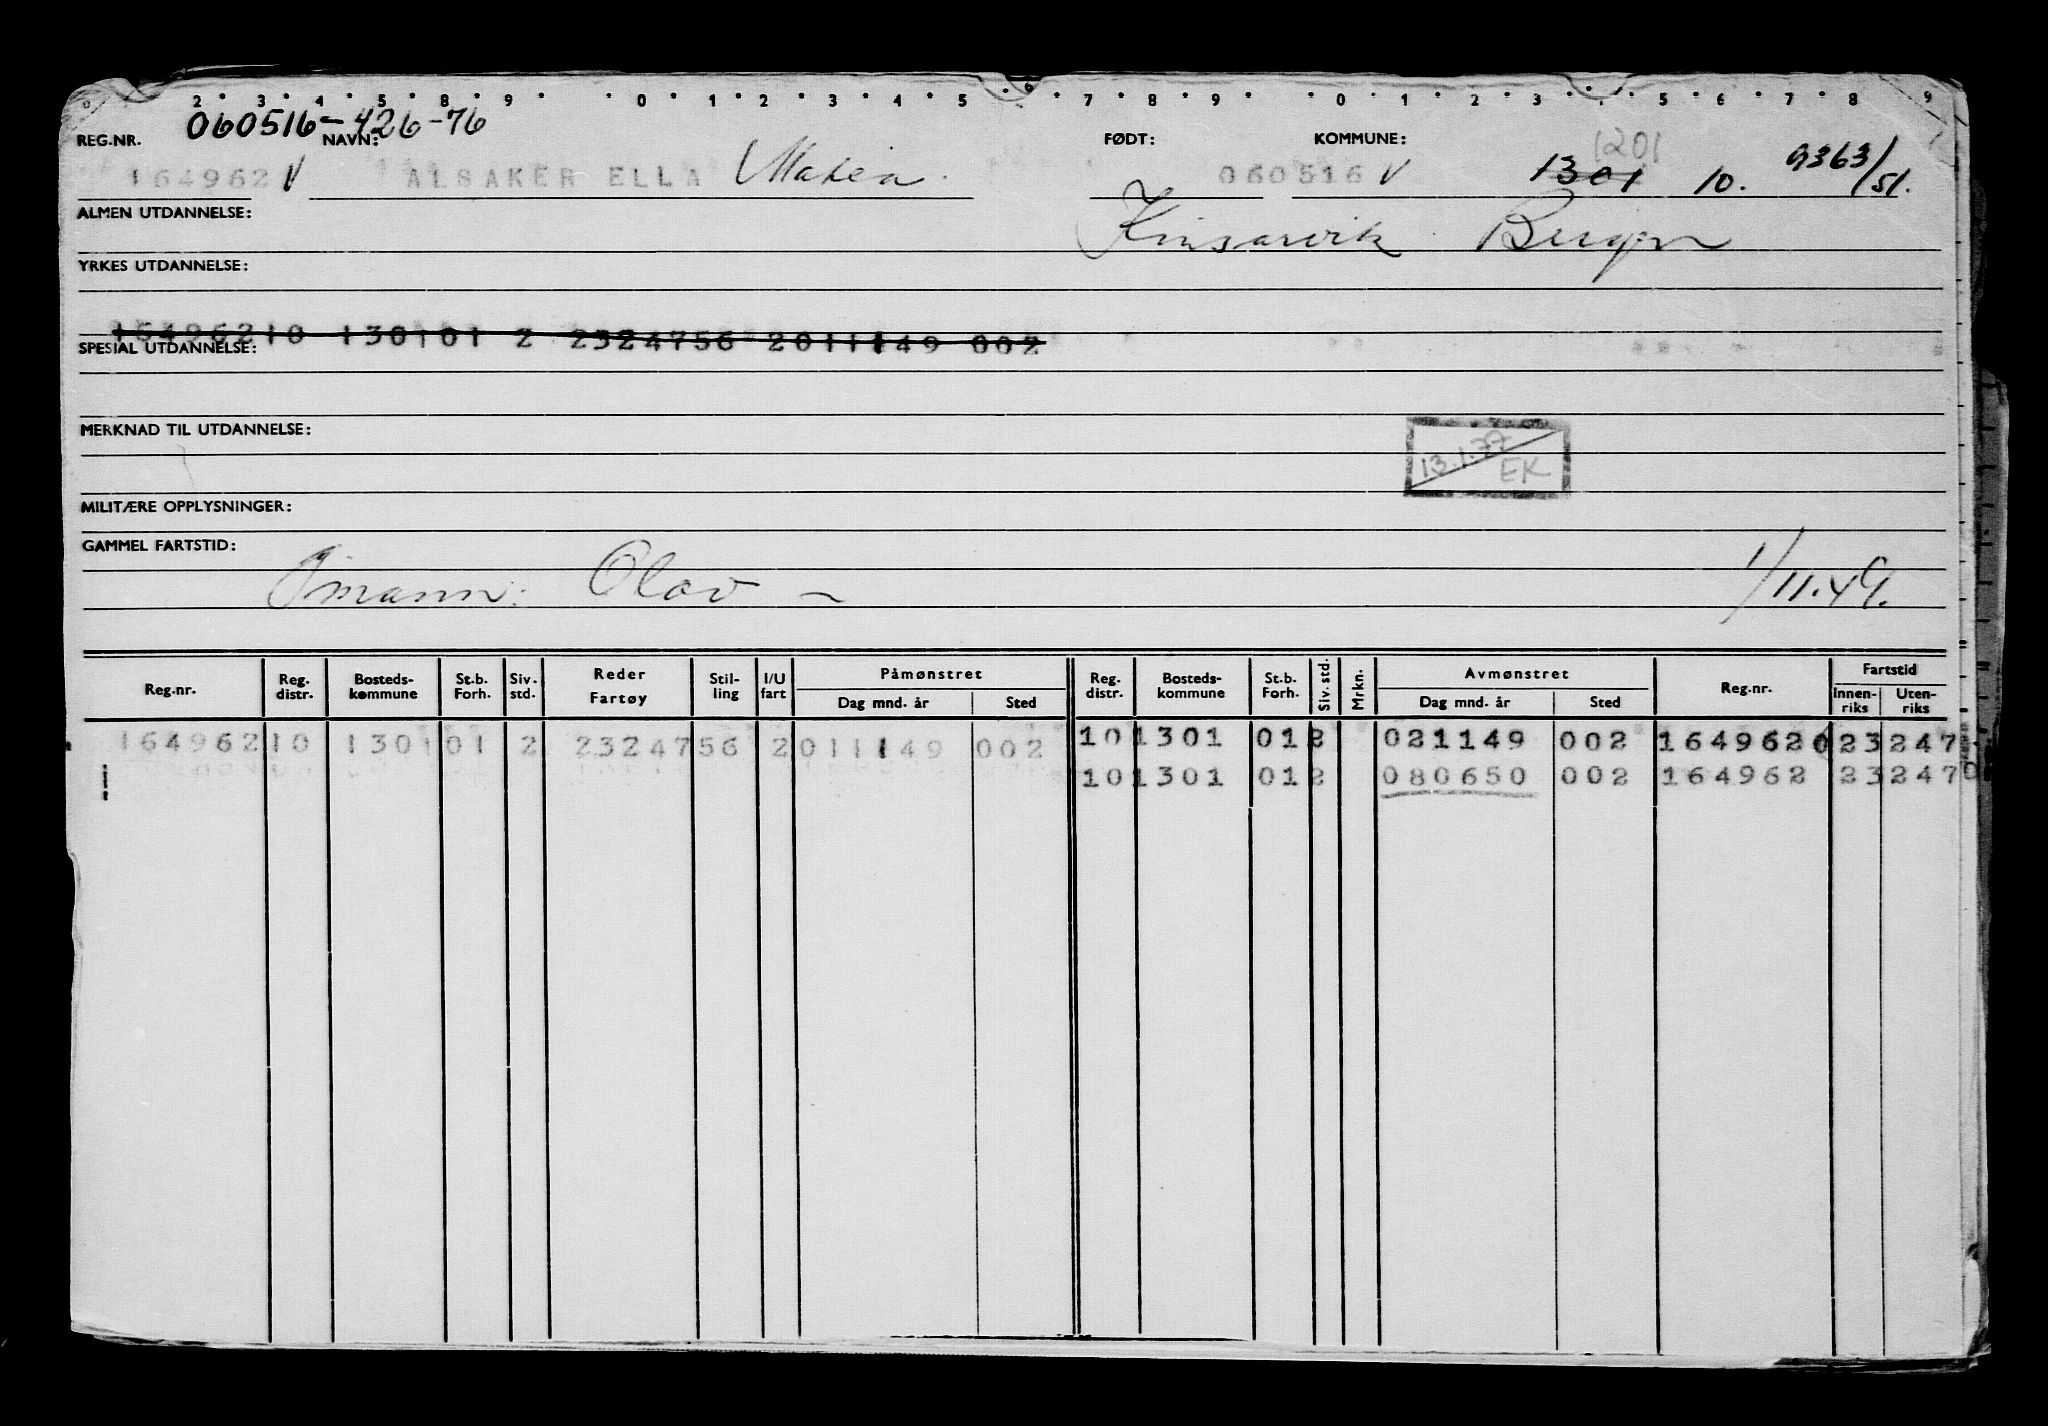 0 2 3 4 5 8 9 0 1 2 3 4 5 6 7 8 9 0 1 2 3 4 5 6 7 8 9
060516-426-76
REG.NR. NAVN: FØDT: KOMMUNE: 1201
164962 V ALSAKER ELLA Maria. 060516 V 1301 10. 9363/51.
ALMEN UTDANNELSE: Kinsarvik Bergen
YRKES UTDANNELSE:
16496210 130101 2 2324756 2011149 002
SPESIAL UTDANNELSE:
MERKNAD TIL UTDANNELSE:
13.1.77 EK
MILITÆRE OPPLYSNINGER:
GAMMEL FARTSTID:
Olav - 1/11.49.
Reg.nr. Reg. distr. Bosteds-kommune St.b. Forh. Siv. std. Reder Fartøy Stil-ling I/U fart Påmønstret Reg. distr. Bosteds-kommune St.b. Forh. Siv. std. Mrkn. Avmønstret Reg.nr. Fartstid
Dag mnd. år Sted Dag mnd. år Sted Innen-riks Uten-riks
16496210 130101 2 2324756 2011149 002 101301 012 021149 002 1649620 23247
101301 012 080650 002 164962 232470